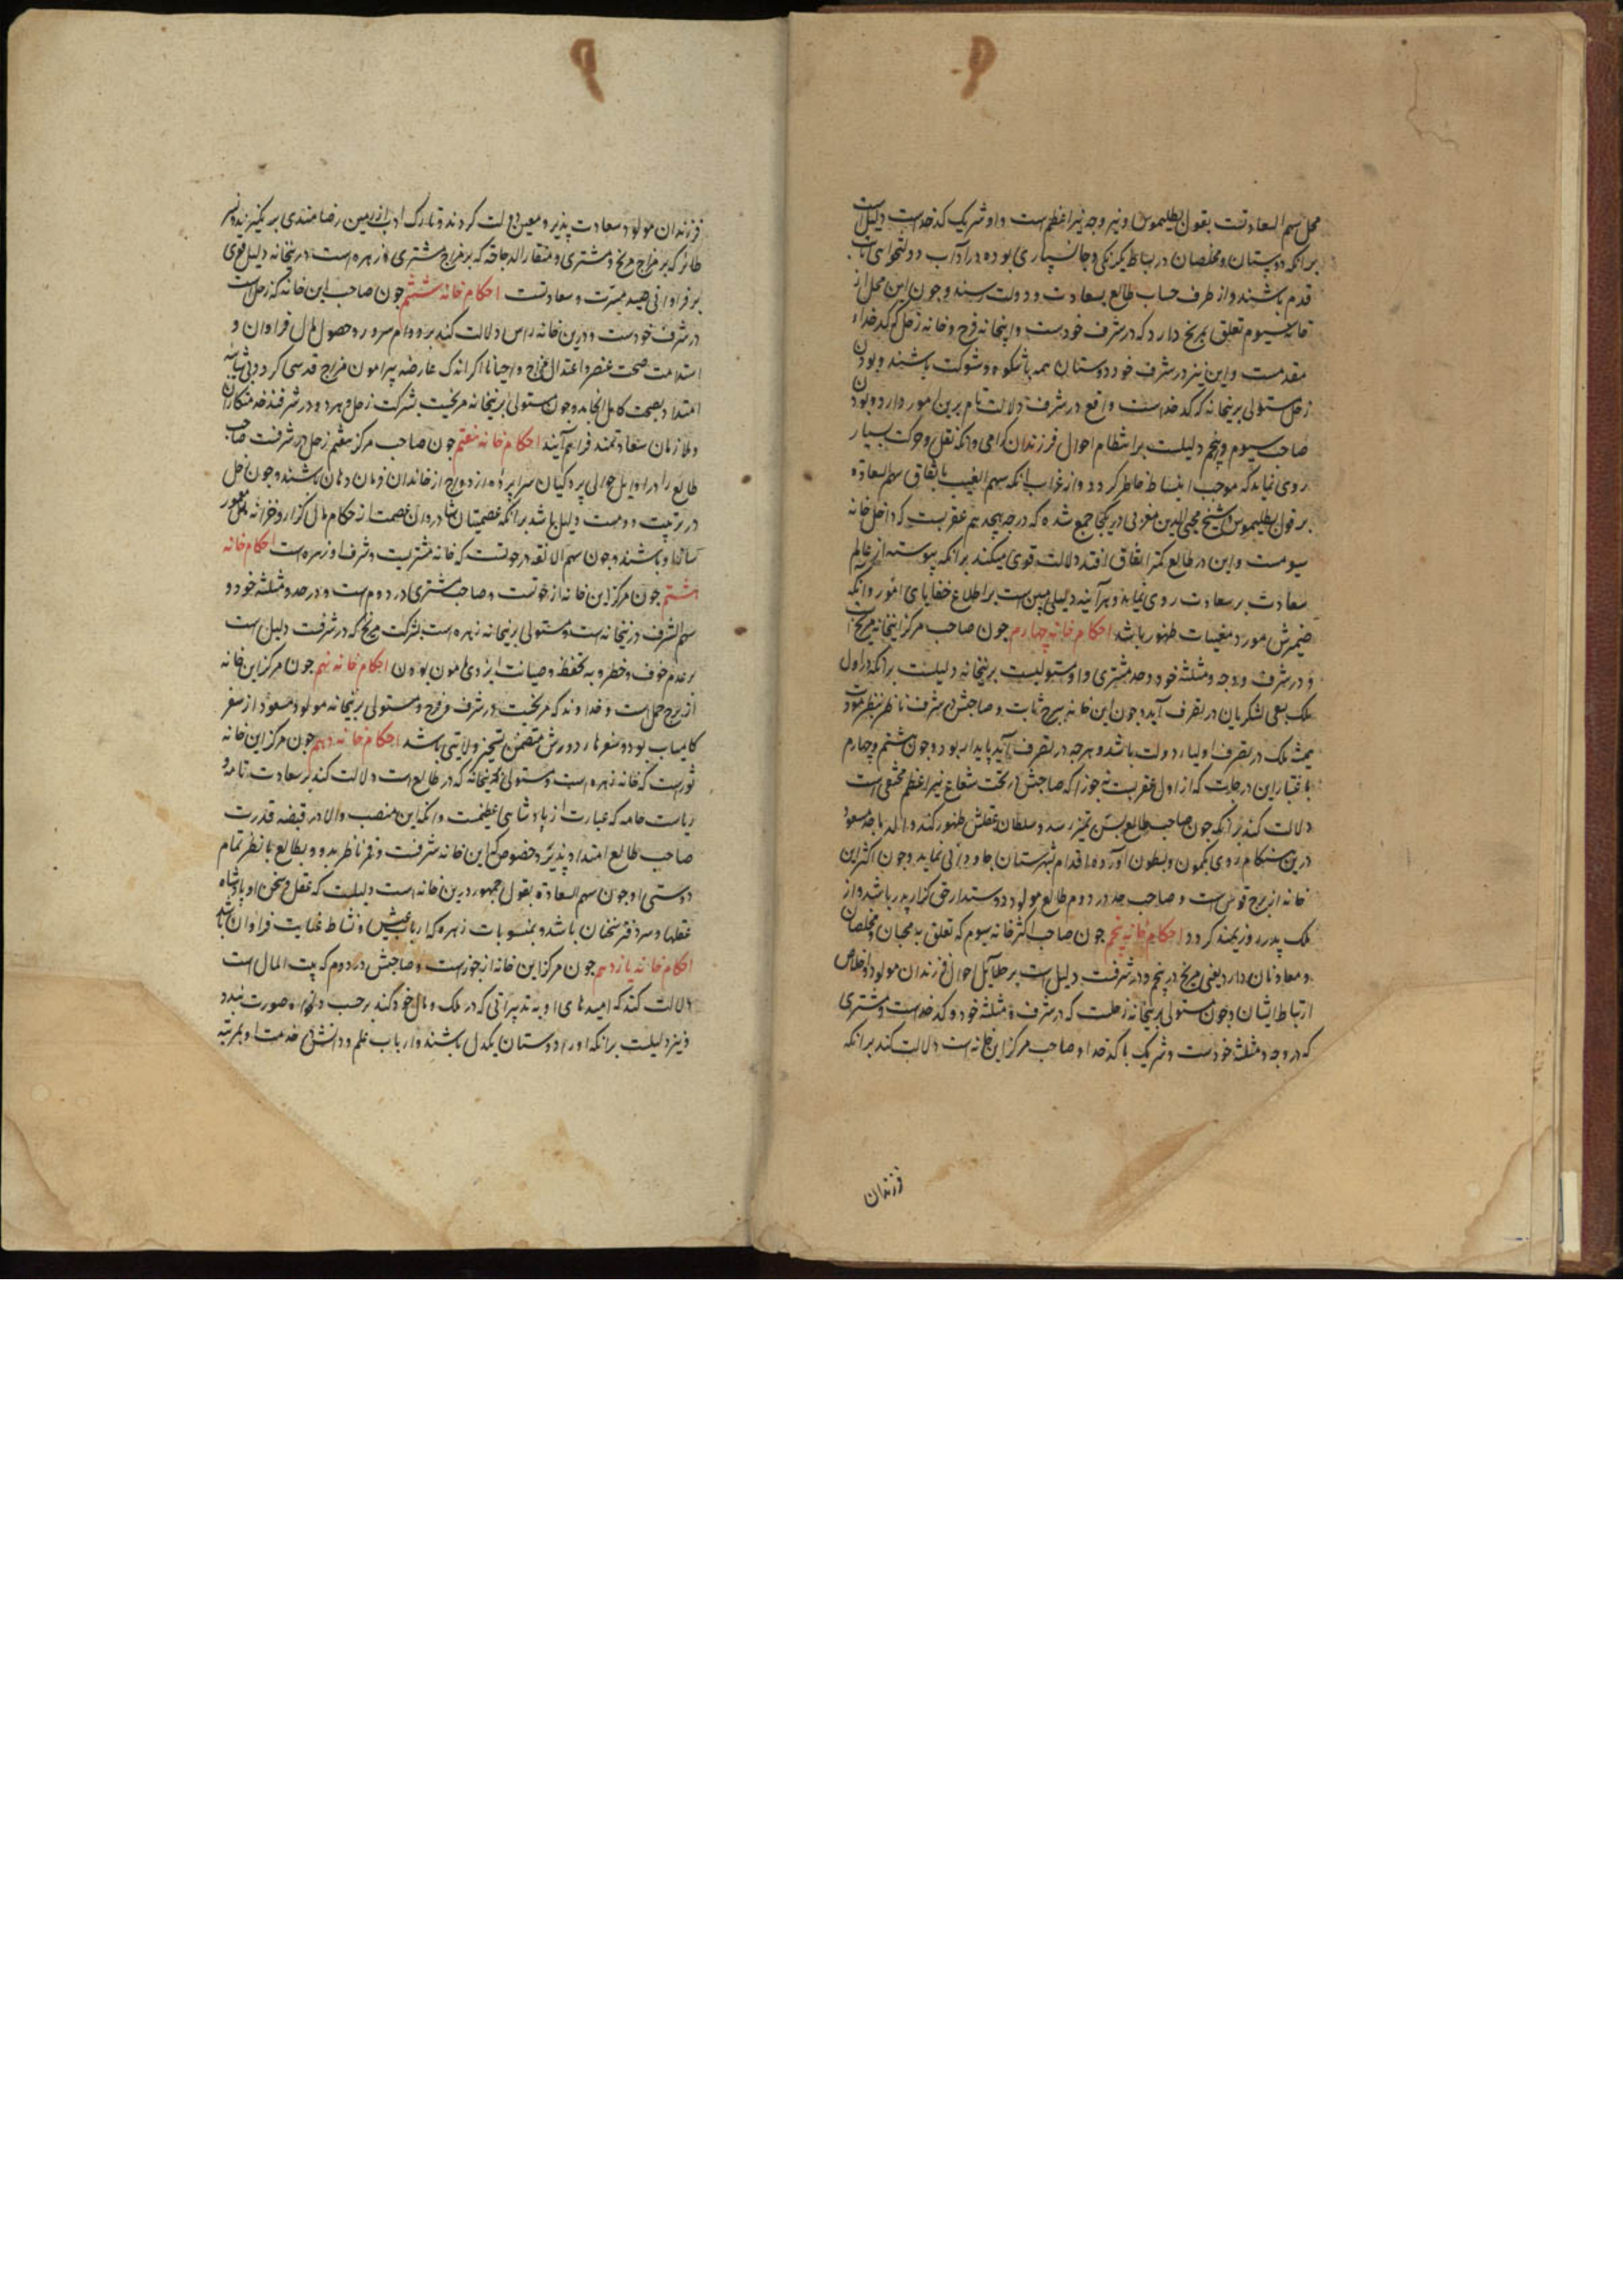 محل سهم السعادتست بقول بطلیموس و نیر وجه نیر اعظم است و او شریک کدخداست دلیل است
برانکه دوستان و مخلصان در بساط یکرنکی و جانسپاری بوده در آداب دولتخواهی ثابت
قدم باشند و از طرف حساب طالع بسعادت و دولت رسند و چون این محل از
خانه سیوم تعلق بمریخ دارد که در شرف خودست و اینخانه فرح و خانه زحل که کدخداء
مقدمست و این نیز در شرف خود دوستان همه باشکوه و شوکت باشند و بودن
زحل مستولی برینخانه که کدخداست واقع در شرف دلالت تام برین امور دارد و بودن
صاحب سیوم و پنجم دلیلست بر انتظام احوال فرزندان کرامی و انکه نقل و حرکت بسیار
روی نماید که موجب انبساط خاطر کردد و از غرایب انکه سهم الغیب باتفاق سهم السعادة
بر قول بطلیموس و شیخ محیی الدین مغربی در یکجا جمع شده که درجه هیجدهم عقربست که داخل خانه
سیومست و این در طالع کمتر اتفاق افتد دلالت قوی میکند برانکه پیوسته از عالم
سعادت بر سعادت روی نماید و هرآینه دلیلی مبین است بر اطلاع خفایای امور و انکه
ضمیرش مورد مغیبات ظهور باشد احکام خانه چهارم چون صاحب مرکز اینخانه مریخ است
و در شرف و وجه و مثلثه خود و حد مشتری و او مستولیست برینخانه دلیلست برانکه در اول
ملک بسعی لشکریان در تصرف آید و چون این خانه برج ثابت و صاحبش بشرف ناظر بنظر مودت
همیشه ملک در تصرف اولیاء دولت باشد و هرچه در تصرف آید پایدار بود و چون هشتم و چهارم
باعتبار این درجات که از اول عقربست تا جوزا که صاحبش در تحت شعاع نیر اعظم مختفی است
دلالت کند برانکه چون صاحب طالع بسن تمیز رسد و سلطان عقلش ظهور کند والد ماجد مسعود
درین هنکام روی بکمون و بطون آورده اقدام بشهرستان جاودانی نماید و چون اکثر این
خانه از برج قوس است و صاحب حد در دوم طالع مولود دوستدار حق کزار پدر باشد و از
ملک پدر روزیمند کردد احکام خانه پنجم چون صاحب اکثر خانه سیوم که تعلق به محبان و مخلصان
و معاونان دارد یعنی مریخ در پنجم و در شرفست دلیل است بر جلایل احوال فرزندان مولود و اخلاص
ارتباط ایشان و چون مستولی برینخانه زحلست که در شرف و مثلثه خود و کدخداست و مشتری
که در وجه و مثلثه خودست و شریک با کدخدا و صاحب مرکز این خانه است دلالت کند برانکه
فرزندان
فرزندان مولود سعادت پذیر و معین دولت کردند و تارک ادب از زمین رضامندی بر نکیرند و نسر
طائر که بر مزاج مریخ و مشتری و منقار الدجاجه که بر مزاج مشتری و زهره است درینخانه دلیل قوی
بر فراوانی هیبت مسرت و سعادتست احکام خانه ششم چون صاحب این خانه که زحل است
در شرف خودست و درین خانه راس دلالت کند بر دوام سرور و حصول مال فراوان و
استدامت صحت عنصر و اعتدال مزاج و احیانا اکر اندک عارضه پیرامون مزاج قدسی کردد بی شایبه
امتداد بصحت کامل انجامد و چون مستولی برینخانه مریخست بشرکت زحل و هر دو در شرفند خدمتکاران
و ملازمان سعادتمند فراهم آیند احکام خانه هفتم چون صاحب مرکز هفتم زحل در شرفست صاحب
طالع را در اوایل حوالی پردکیان سراپرده ازدواج از خاندان فرمان دهان باشند و چون زحل
در تربیت دومست دلیل باشد برانکه عصمتیان شادروان عصمت از حکام مال کزار و خزانه معمور
ساز او باشند و چون سهم الالفه در حوتست که خانه مشتریست و شرف او زهره است احکام خانه
هشتم چون مرکز این خانه از حوتست و صاحب مشتری در دوم است و در حد و مثلثه خود و
سهم الشرف درینخانه است و مستولی برینخانه زهره است بشرکت مریخ که در شرفست دلیل است
بر عدم خوف و خطر و به تحفظ و صیانت ایزدی مامون بودن احکام خانه نهم چون مرکز این خانه
از برج حمل است و خداوند که مریخست در شرف و فرح و مستولی برینخانه مولود مسعود از سفر
کامیاب بود و سفرهاء دور دورش متضمن تسخیر ولایتی باشد احکام خانه دهم چون مرکز این خانه
ثورست که خانه زهره است و مستولی برینخانه که در طالع است دلالت کند بر سعادت تامه و
ریاست عامه که عبارت از پادشاهی عظیمست و انکه این منصب والا در قبضه قدرت
صاحب طالع امتداد پذیرد خصوص که این خانه شرفست و قمر ناظر بدو و بطالع بانظر تمام
دوستی او چون سهم السعادة بقول جمهور درین خانه است دلیلست که عقل و سخن او پادشاه
عقلها و سردفتر سخنان باشد و بمنسوبات زهره که ارباب عیش و نشاط عنایت فراوان باشد
احکام خانه یازدهم چون مرکز این خانه از جوزاست و صاحبش در دوم که بیت المال است
دلالت کند که امیدهای او به تدبیراتی که در ملک و مال خود کند بر حسب دلخواه صورت بندد
و نیز دلیلست برانکه او را دوستان یکدل باشند و ارباب علم و دانش در خدمت او بمرتبه